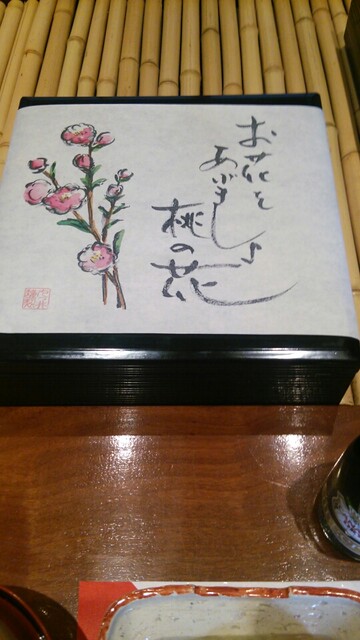 お花を
あげましょ♪
桃の花